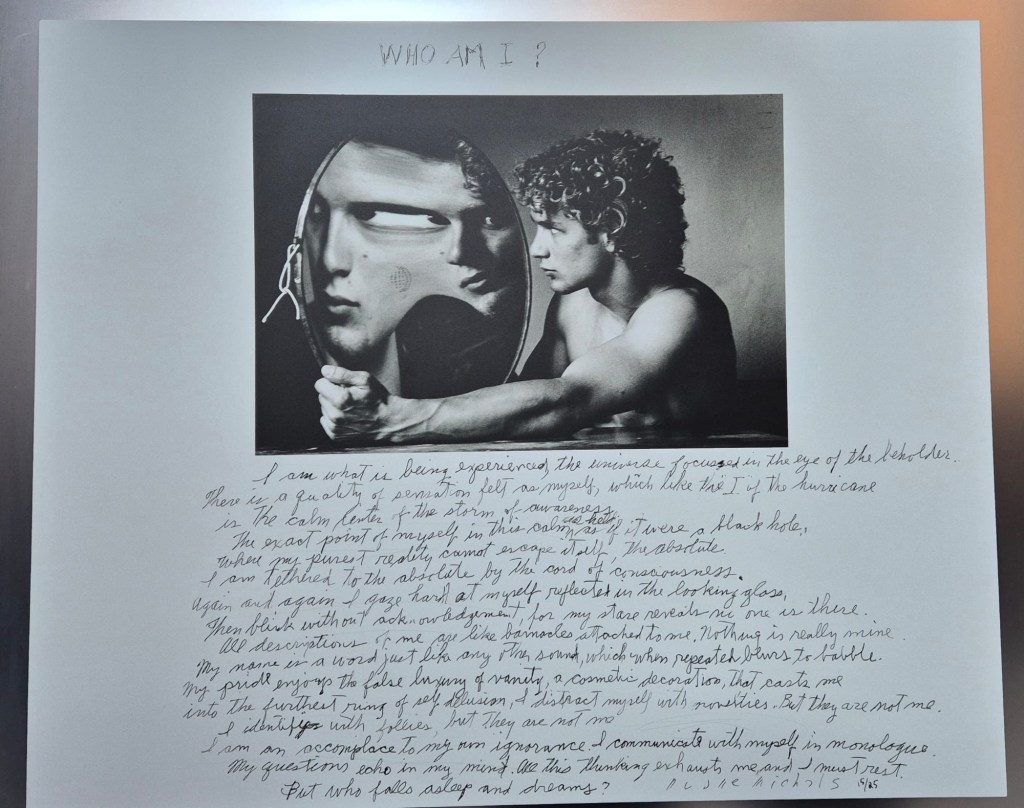 WHO AM I ?
I am what is being experienced, the universe focused in the eye of the beholder.
There is a quality of sensation felt as myself, which like the I of the hurricane
is the calm center of the storm of awareness.
The exact point of myself in this calm is hiding as if it were a black hole,
where my purest reality cannot escape itself, the absolute.
I am tethered to the absolute by the cord of consciousness.
Again and again I gaze hard at myself reflected in the looking glass,
Then blink without acknowledgement, for my stare reveals no one is there.
All descriptions of me are like barnacles attached to me. Nothing is really mine.
My name is a word just like any other sound, which when repeated blurs to babble.
My pride enjoys the false luxury of vanity, a cosmetic decoration, that casts me
into the furthest ring of self delusion, I distract myself with novelties. But they are not me.
I identify with follies, but they are not me
I am an accomplace to my own ignorance. I communicate with myself in monologue.
My questions echo in my mind. All this thinking exhausts me and I must rest.
But who falls asleep and dreams?
Duane Michals 5/25